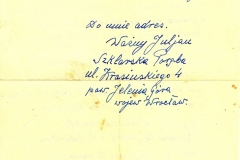 Do mnie adres.
Ważny Juljan
Szklarska Poręba
ul. Krasińskiego 4
pow. Jelenia Góra
wojew Wrocław.